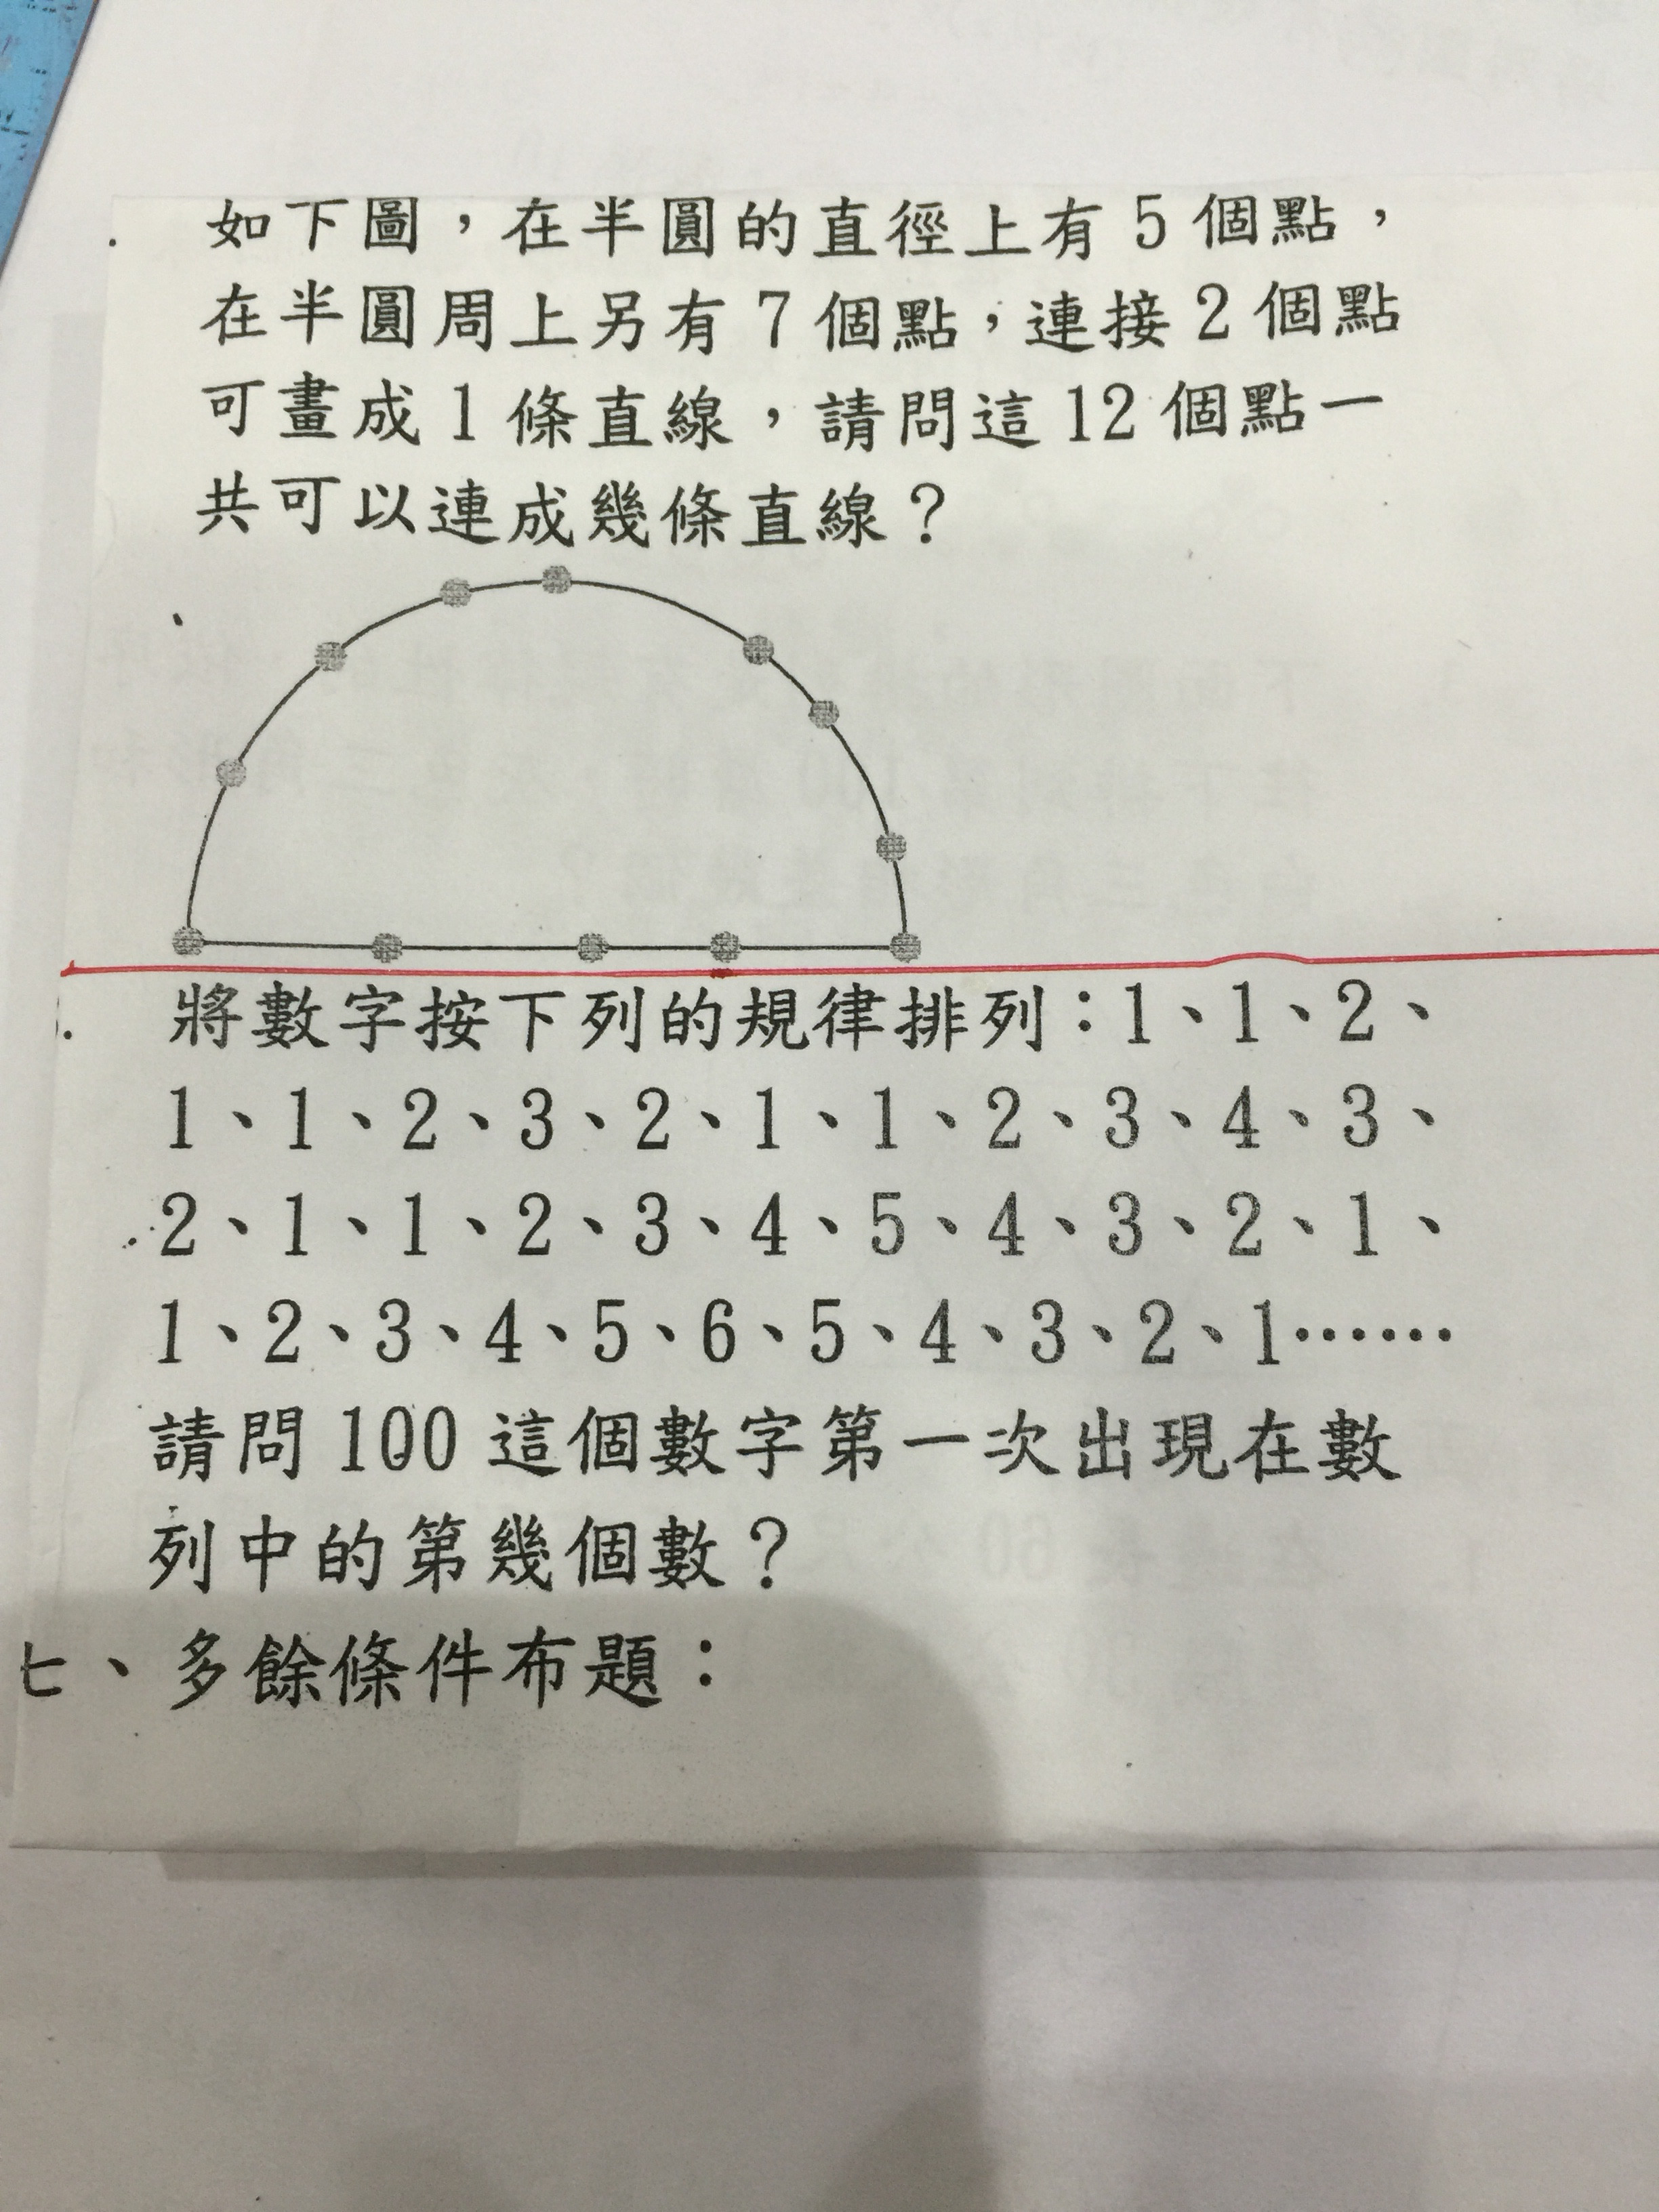 如下圖，在半圓的直徑上有5個點，
在半圓周上另有7個點，連接2個點
可畫成1條直線，請問這12個點一
共可以連成幾條直線？
將數字按下列的規律排列：1、1、2、
1、1、2、3、2、1、1、2、3、4、3、
2、1、1、2、3、4、5、4、3、2、1、
1、2、3、4、5、6、5、4、3、2、1……
請問100這個數字第一次出現在數
列中的第幾個數？
七、多餘條件布題：